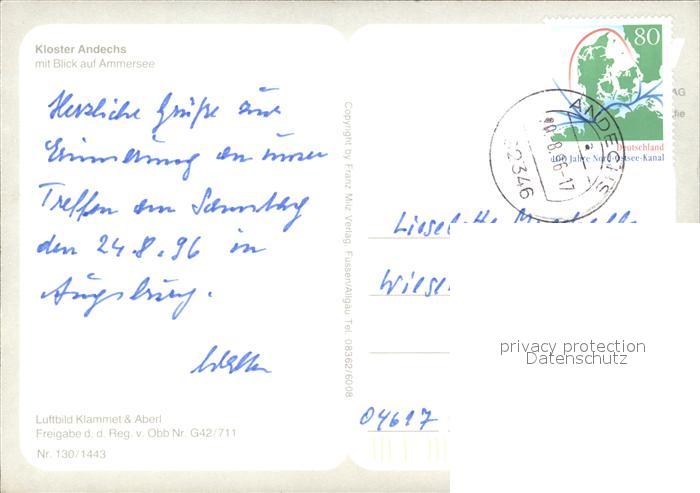 Kloster Andechs
mit Blick auf Ammersee
Herzliche Grüße zur
Erinnerung an unser
Treffen am Samstag
den 24.8.96 in
Augsburg.
Luftbild Klammet & Aberl
Freigabe d. d. Reg. v. Obb Nr. G42/711
Nr. 130/1443
Copyright by Franz Milz Verlag Füssen/Allgäu Tel. 08362/6008
80
Deutschland
100 Jahre Nord-Ostsee-Kanal
ANDECHS
82346
8.96-17
AG
04617
privacy protection
Datenschutz